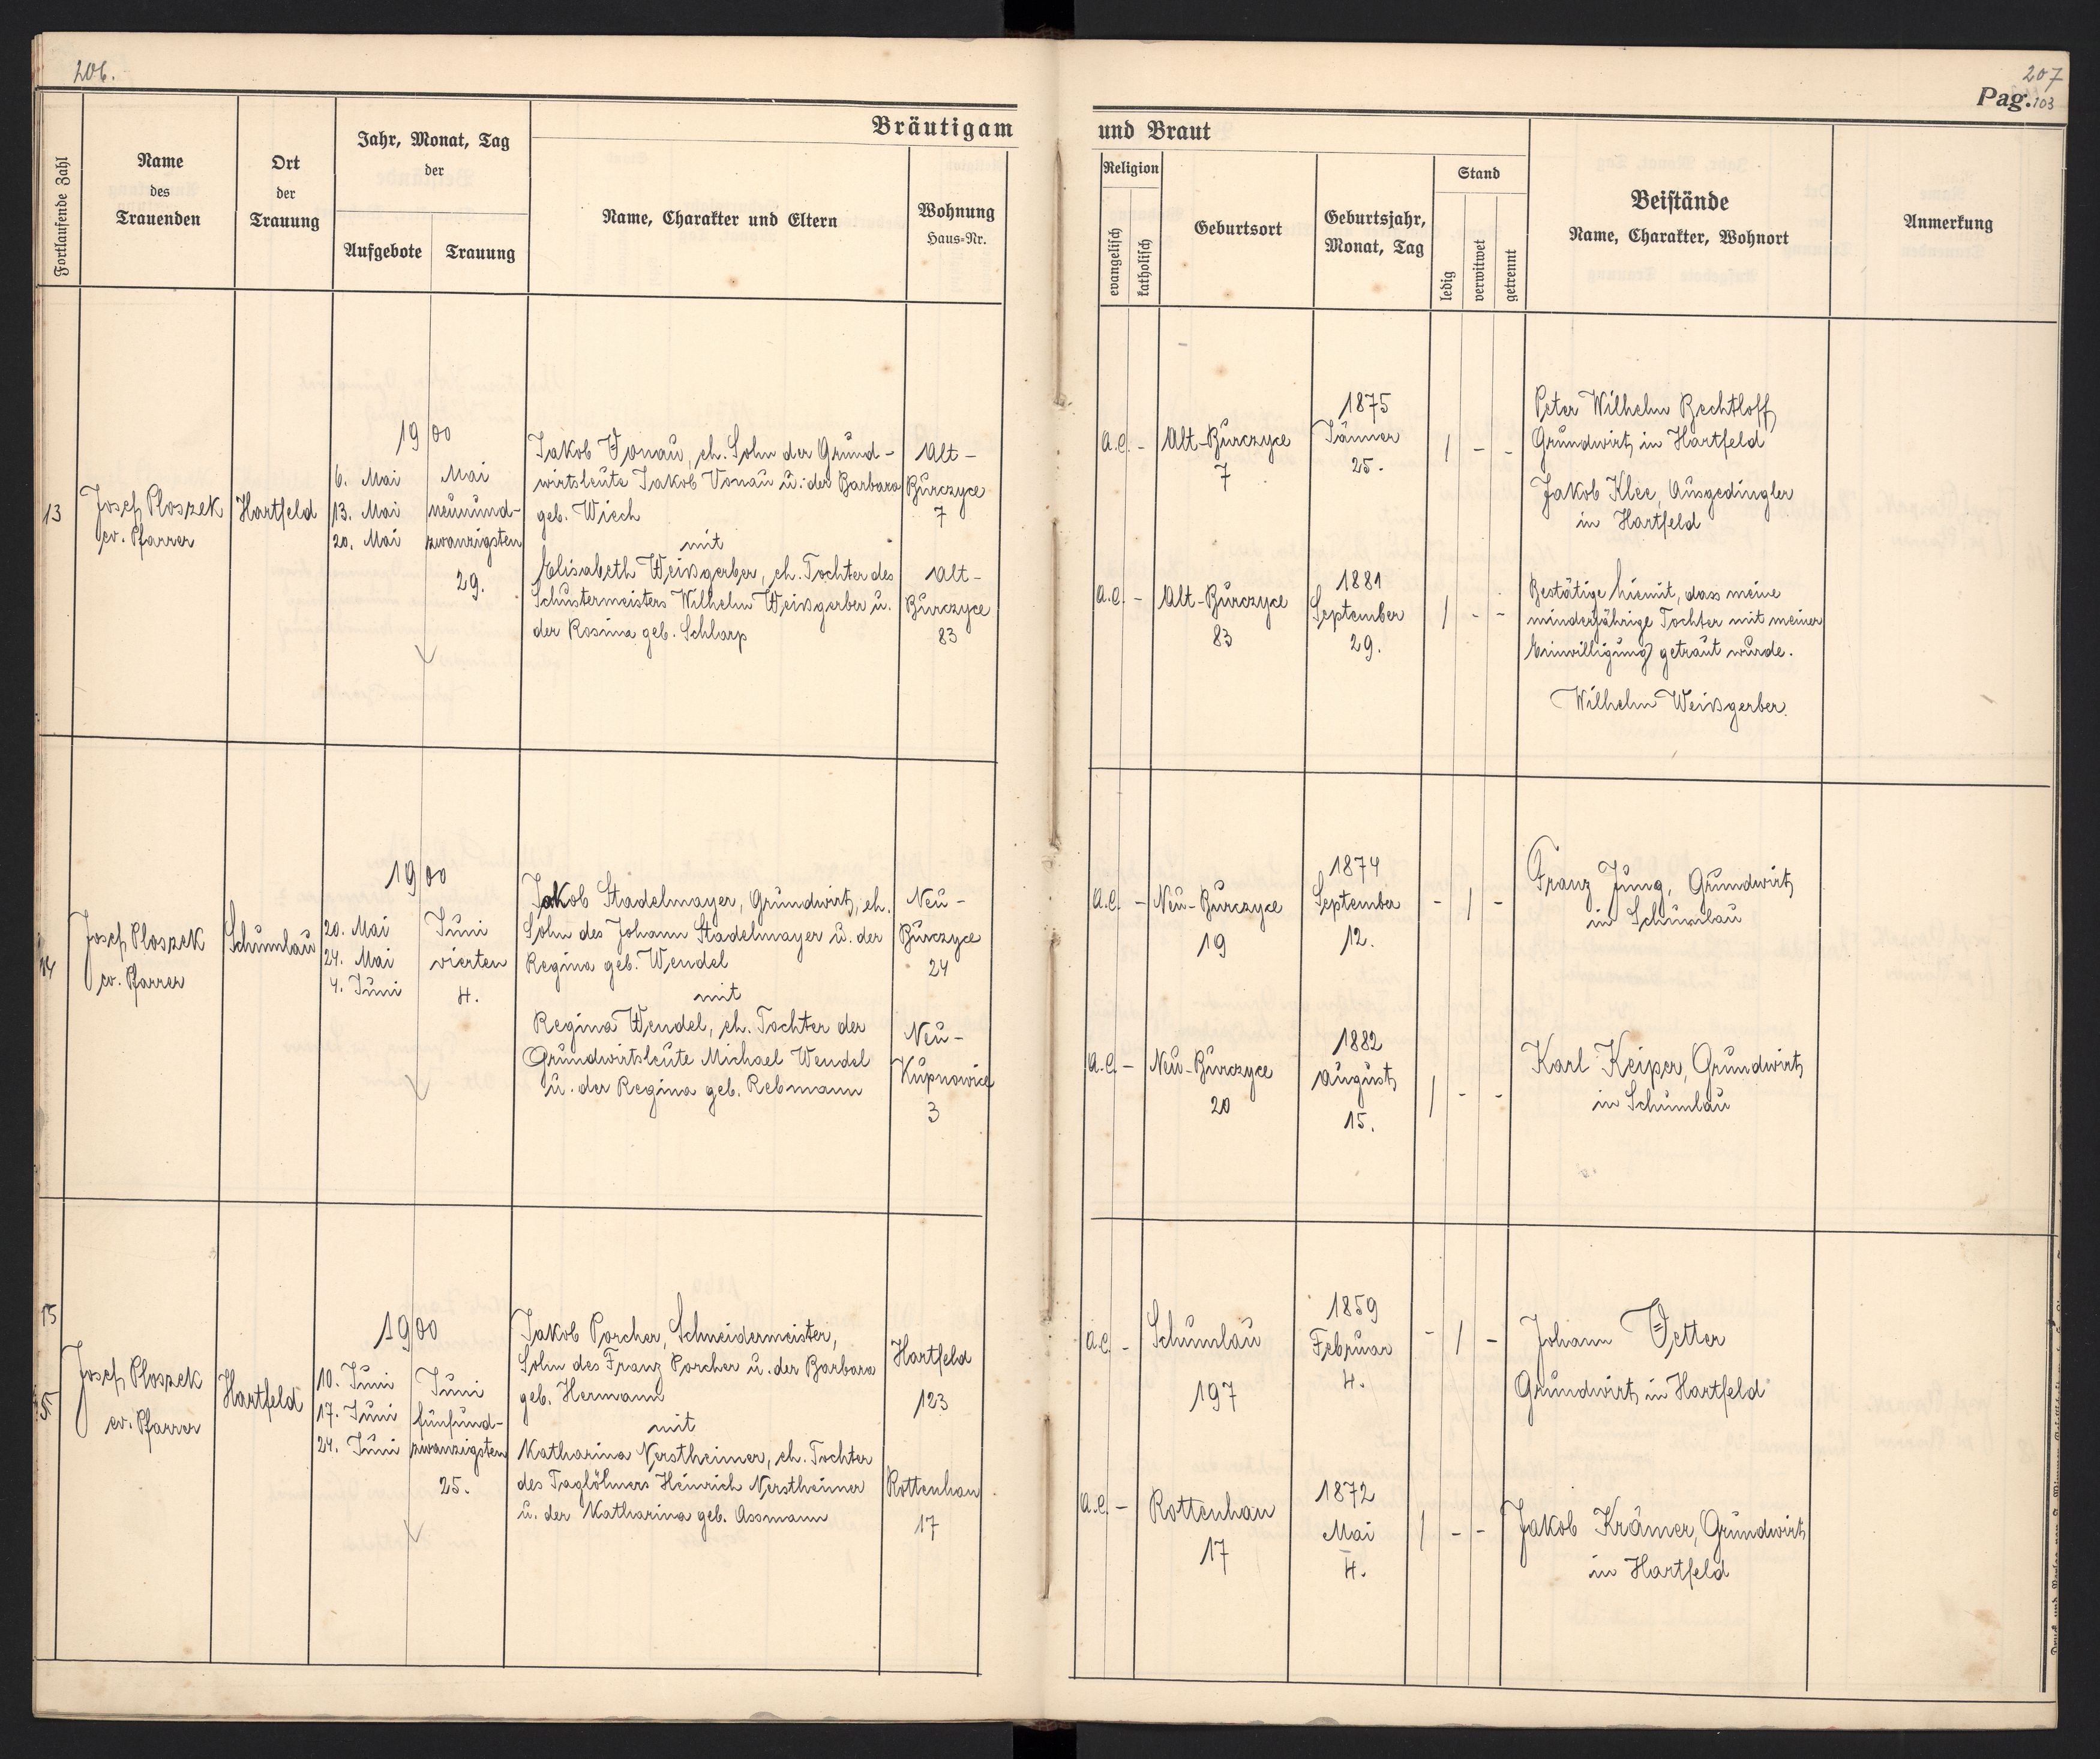 206.
207
Pag. 103
Bräutigam und Braut
Fortlaufende Zahl
Name
des
Trauenden
Ort
der
Trauung
Jahr, Monat, Tag
der
Aufgebote
Trauung
Name, Charakter und Eltern
Wohnung
Haus-Nr.
Religion
evangelisch
katholisch
Geburtsort
Geburtsjahr,
Monat, Tag
Stand
ledig
verwitwet
getrennt
Beistände
Name, Charakter, Wohnort
Anmerkung
13
Josef Ploszek
ev. Pfarrer
Hartfeld
1900
6. Mai
13. Mai
20. Mai
Mai
neunund-
zwanzigsten
29.
Jakob Vonau, eh. Sohn der Grund-
wirtsleute Jakob Vonau u. der Barbara
geb. Wiech
mit
Elisabeth Weißgerber, eh. Tochter des
Schustermeisters Wilhelm Weißgerber u.
der Rosina geb. Schlarp
Alt-
Burczyce
7
Alt-
Burczyce
83
a.C. -
Alt-Burczyce
7
1875
Jänner
25.
/ - -
a.C. -
Alt-Burczyce
83
1881
September
29.
/ - -
Peter Wilhelm Bechtloff
Grundwirt in Hartfeld
Jakob Klee, Ausgedingler
in Hartfeld
Bestätige hiemit, dass meine
minderjährige Tochter mit meiner
Einwilligung getraut wurde.
Wilhelm Weißgerber
14
Josef Ploszek
ev. Pfarrer
Schumlau
1900
20. Mai
24. Mai
4. Juni
Juni
vierten
4.
Jakob Stadelmayer, Grundwirt, eh.
Sohn des Johann Stadelmayer u. der
Regina geb. Wendel
mit
Regina Wendel, eh. Tochter der
Grundwirtsleute Michael Wendel
u. der Regina geb. Rebmann
Neu-
Burczyce
24
Neu-
Kupnowice
3
a.C. -
Neu-Burczyce
19
1874
September
12.
- / -
a.C. -
Neu-Burczyce
20
1882
August
15.
/ - -
Franz Jung, Grundwirt
in Schumlau
Karl Keiper, Grundwirt
in Schumlau
15
Josef Ploszek
ev. Pfarrer
Hartfeld
1900
10. Juni
17. Juni
24. Juni
Juni
fünfund-
zwanzigsten
25.
Jakob Porcher, Schneidermeister,
Sohn des Franz Porcher u. der Barbara
geb. Hermann
mit
Katharina Nerstheimer, eh. Tochter
des Taglöhners Heinrich Nerstheimer
u. der Katharina geb. Assmann
Hartfeld
123
Rottenhan
17
a.C. -
Schumlau
197
1859
Februar
4.
- / -
a.C. -
Rottenhan
17
1872
Mai
4.
/ - -
Johann Vetter
Grundwirt in Hartfeld
Jakob Krämer, Grundwirt
in Hartfeld